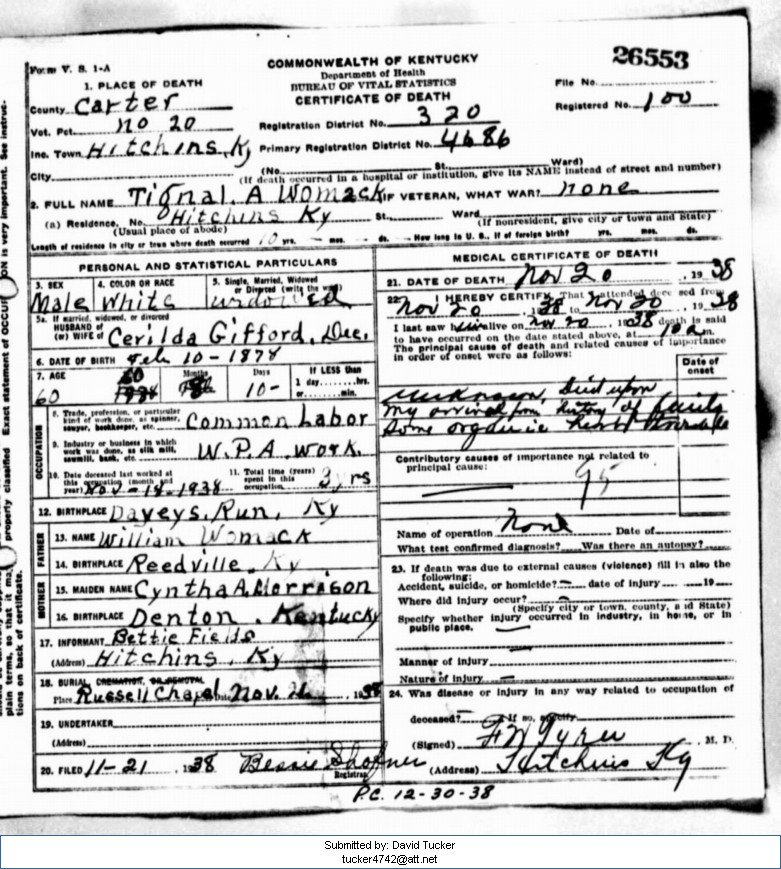 26553
Form V. S. 1-A
COMMONWEALTH OF KENTUCKY
Department of Health
BUREAU OF VITAL STATISTICS
CERTIFICATE OF DEATH
File No.
Registered No. 100
1. PLACE OF DEATH
County Carter
Vot. Pct. No 20
Inc. Town Hitchins, Ky
City
Registration District No. 320
Primary Registration District No. 4686
(No. St. Ward)
(If death occurred in a hospital or institution, give its NAME instead of street and number)
2. FULL NAME Tignal. A Womack IF VETERAN, WHAT WAR? none
(a) Residence, No. Hitchins Ky St. Ward
(Usual place of abode) (If nonresident, give city or town and State)
Length of residence in city or town where death occurred 10 yrs. mos. ds. How long in U. S., if of foreign birth? yrs. mos. ds.
PERSONAL AND STATISTICAL PARTICULARS
3. SEX Male
4. COLOR OR RACE White
5. Single, Married, Widowed or Divorced (write the word) widowed
5a. If married, widowed, or divorced
HUSBAND of
(or) WIFE of Cerilda Gifford, Dec.
6. DATE OF BIRTH Feb 10-1878
7. AGE 60 Months Days 10- If LESS than
1 day, hrs.
or min.
OCCUPATION
8. Trade, profession, or particular kind of work done, as spinner, sawyer, bookkeeper, etc. Common Labor
9. Industry or business in which work was done, as silk mill, sawmill, bank, etc. W.P.A. Work.
10. Date deceased last worked at this occupation (month and year) Nov-18-1938
11. Total time (years) spent in this occupation 3 yrs
12. BIRTHPLACE Daveys, Run, Ky
FATHER
13. NAME William Womack
14. BIRTHPLACE Reedville, Ky
MOTHER
15. MAIDEN NAME Cyntha A. Morrison
16. BIRTHPLACE Denton, Kentucky
17. INFORMANT Bettie Fields
(Address) Hitchins, Ky
18. BURIAL, CREMATION, OR REMOVAL
Place Russell Chapel Date Nov. 21 1938
19. UNDERTAKER
(Address)
20. FILED 11-21 1938 Bessie Shofner
Registrar
MEDICAL CERTIFICATE OF DEATH
21. DATE OF DEATH Nov 20, 1938
22. I HEREBY CERTIFY, That I attended deceased from
Nov 20 1938 to Nov 20, 1938
I last saw him alive on Nov 20 1938 death is said
to have occurred on the date stated above, at 10 a.m.
The principal cause of death and related causes of importance
in order of onset were as follows:
Date of onset
Unknown, Died upon
my arrival from history of family
some organic heart trouble
Contributory causes of importance not related to
principal cause:
95
Name of operation None Date of
What test confirmed diagnosis? Was there an autopsy?
23. If death was due to external causes (violence) fill in also the
following:
Accident, suicide, or homicide? date of injury 19
Where did injury occur?
(Specify city or town, county, and State)
Specify whether injury occurred in industry, in home, or in
public place.
Manner of injury
Nature of injury
24. Was disease or injury in any way related to occupation of
deceased? If so, specify
(Signed) M. D.
(Address) Hitchins Ky
P.C. 12-30-38
Submitted by: David Tucker
tucker4742@att.net